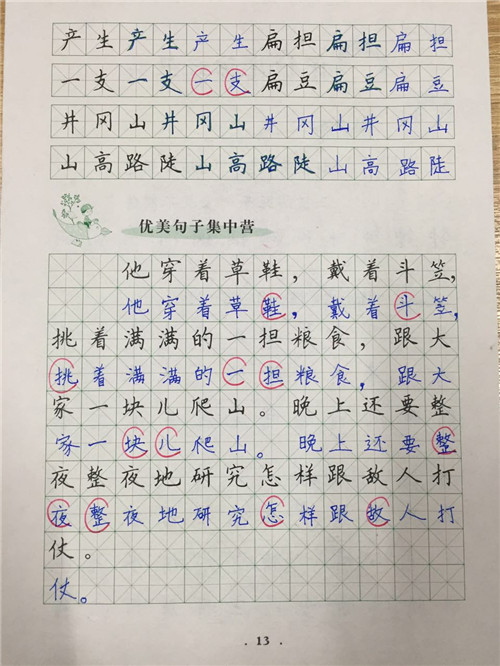 产生产生产生扁担扁担扁担
一支一支一支扁豆扁豆扁豆
井冈山井冈山井冈山井冈山
山高路陡山高路陡山高路陡
优美句子集中营
他穿着草鞋，戴着斗笠，
他穿着草鞋，戴着斗笠，
挑着满满的一担粮食，跟大
挑着满满的一担粮食，跟大
家一块儿爬山。晚上还要整
家一块儿爬山。晚上还要整
夜整夜地研究怎样跟敌人打
夜整夜地研究怎样跟敌人打
仗。
仗。
· 13 ·